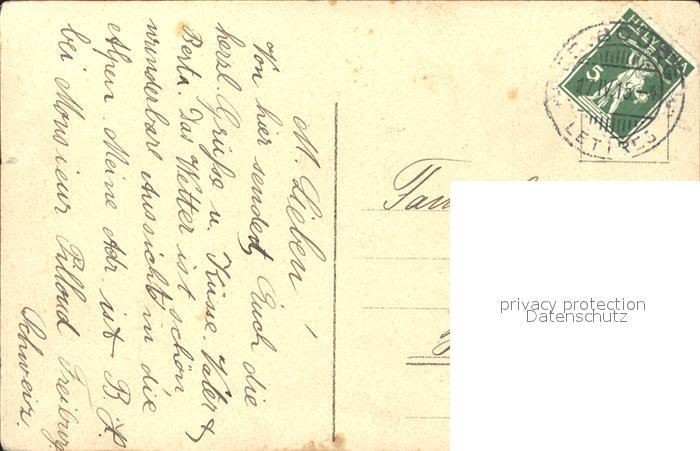 M. Lieben!
Von hier sendet Euch die
herzl. Grüsse u. Küsse. Vater &
Berta. Das Wetter ist schön
wunderbare Aussicht in die
Alpen. Meine Adr. ist B. H.
bei Monsieur Pilloud Freiburg
Schweiz.
HELVETIA
5
17.IV.15
LETTRES
privacy protection
Datenschutz